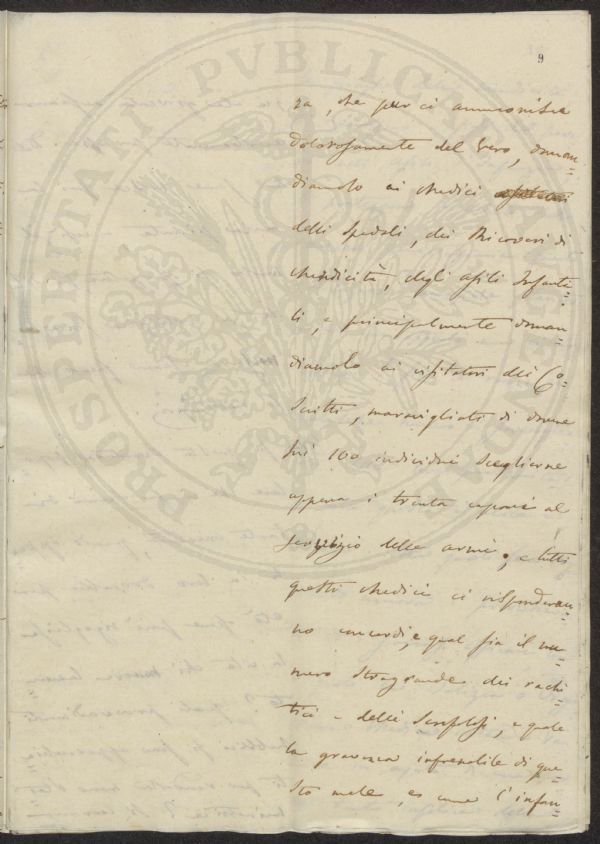 9
za, che pur ci ammonisca
dolorosamente del vero, doman=
diamolo ai Medici
delli Spedali, dei Ricoveri di
Mendicità, degli asili Infanti=
li, e principalmente doman=
diamolo ai visitatori dei Co=
scritti, maravigliati di dovere
sui 100 individui sceglierne
appena i trenta capaci al
servizio delle armi; e tutti
questi Medici ci risponderan=
no concordi, e qual sia il nu=
mero stragrande dei rachi=
tici e delli Scrofolosi, e quale
la gravezza infrenabile di que=
sto male, e come l'infan=
PROSPERITATI PVBLICAE AVGENDAE